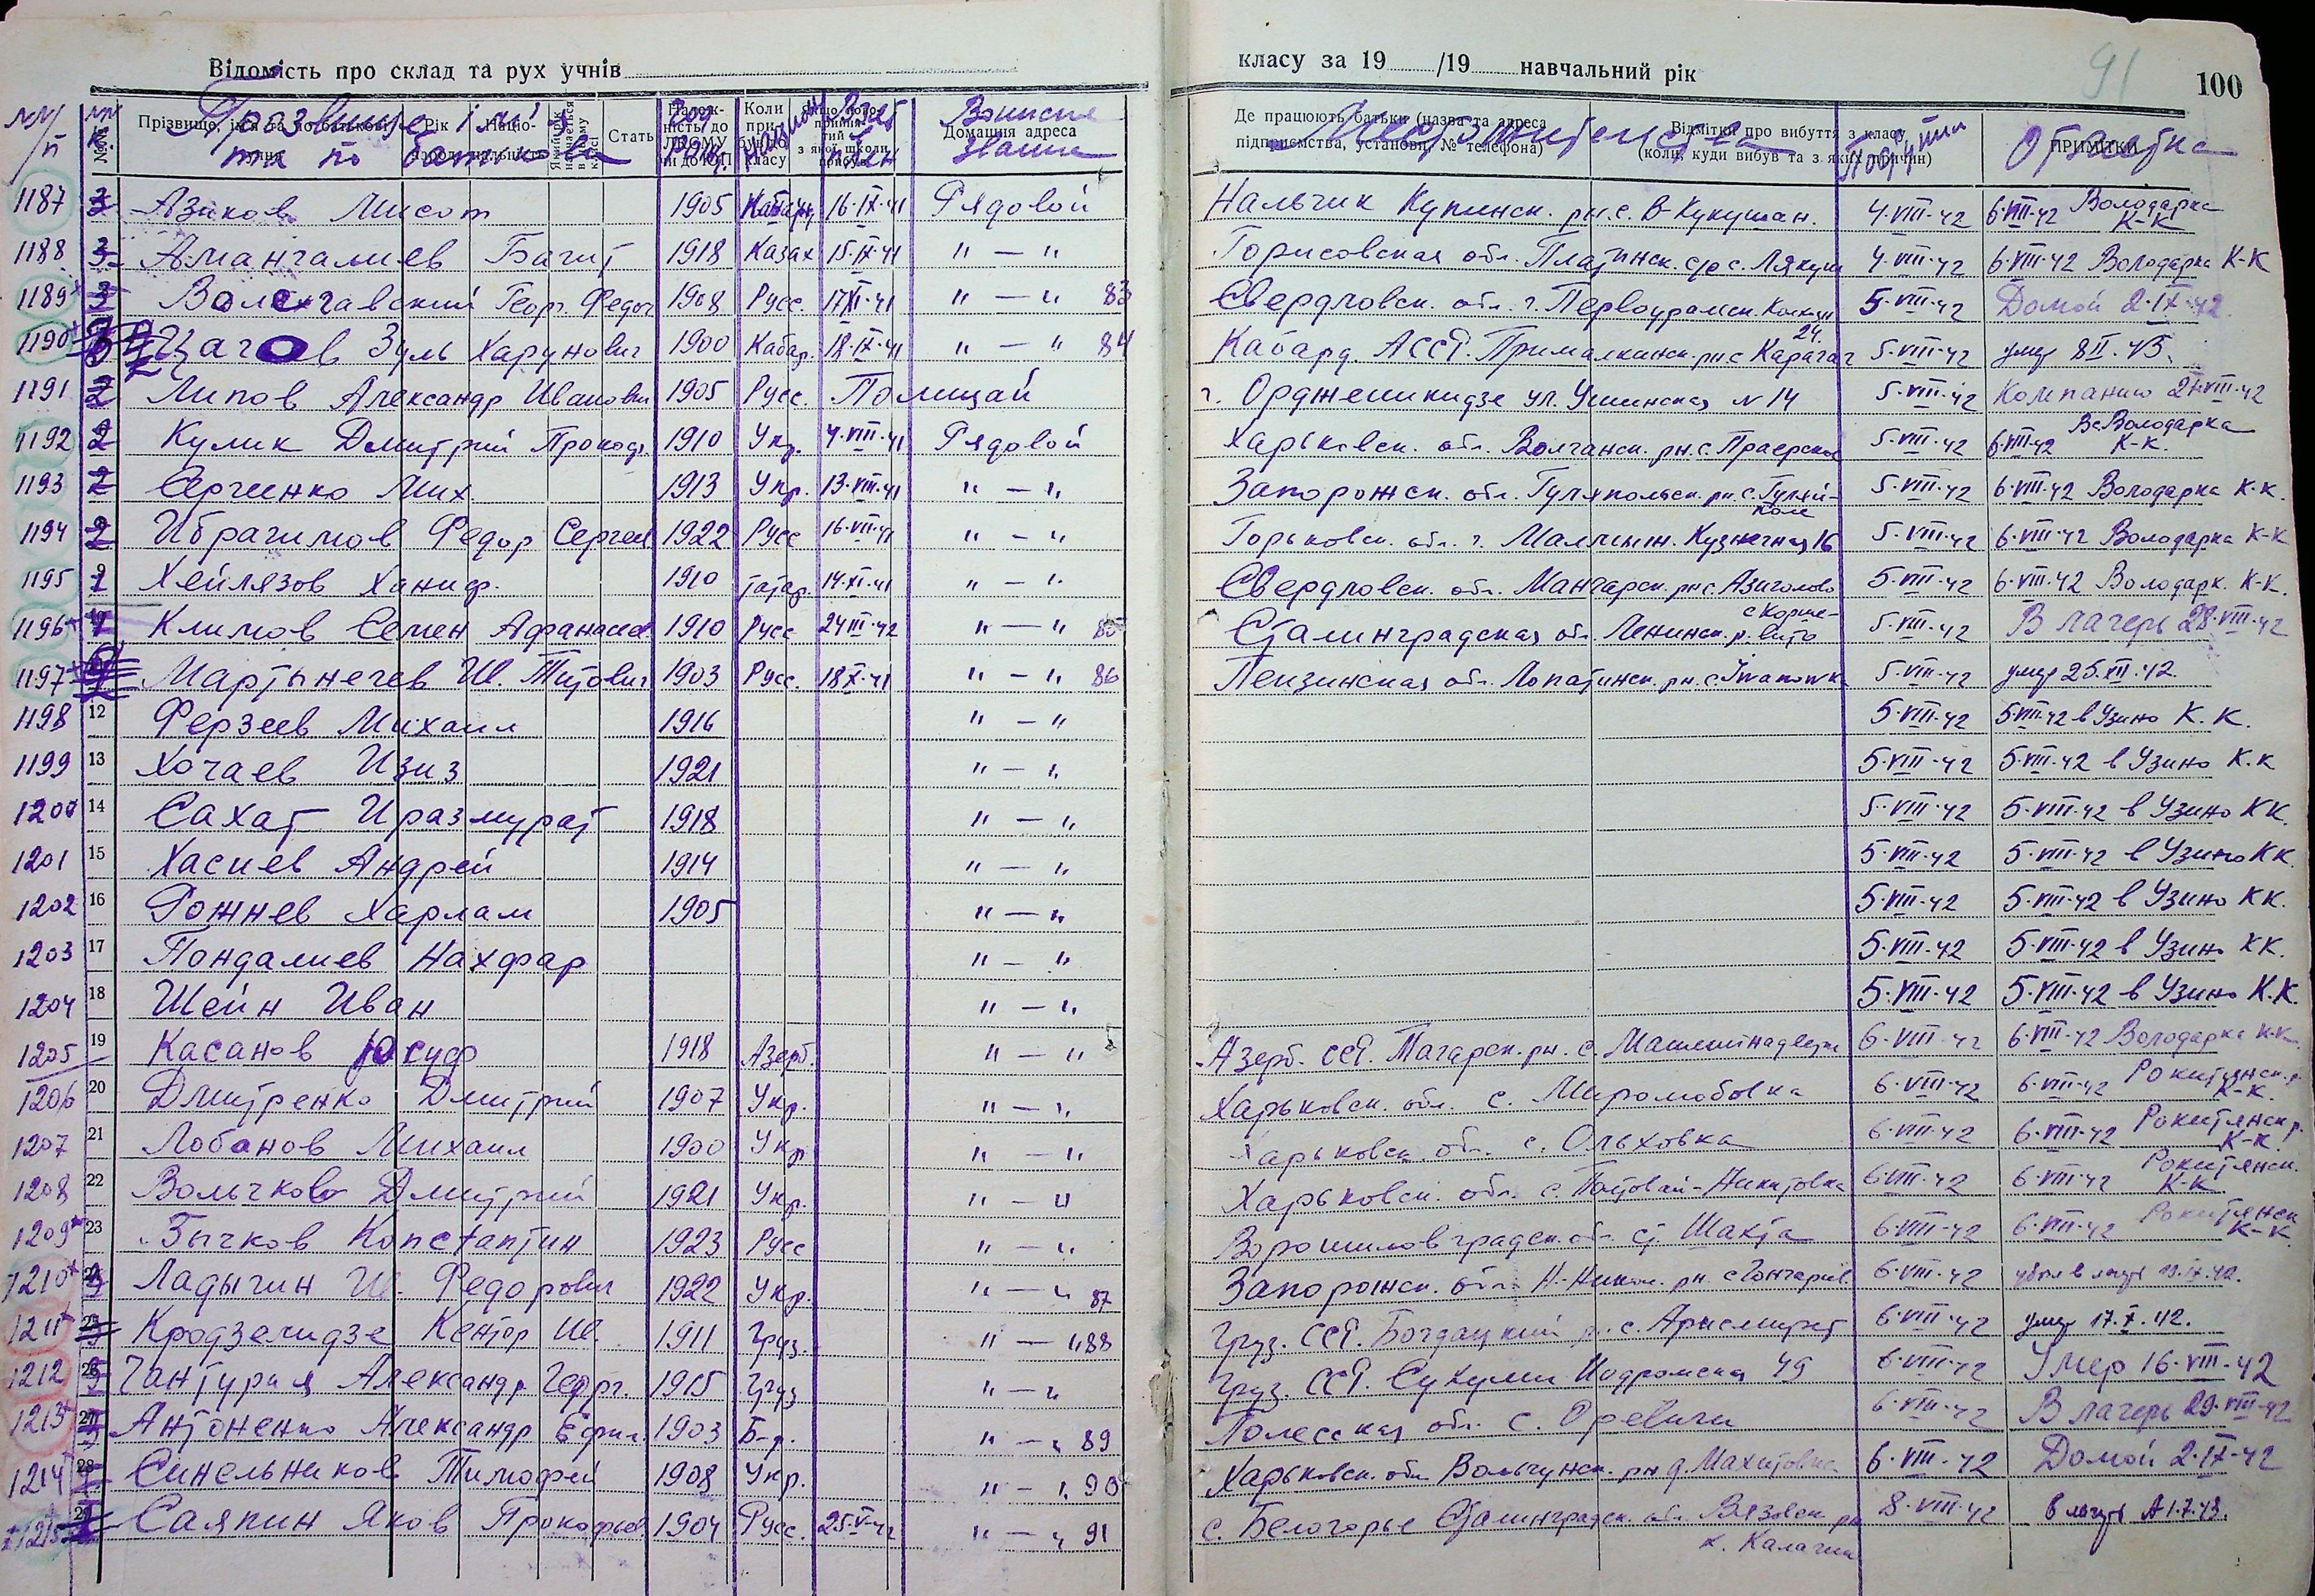 Відомість про склад та рух учнів класу за 19 /19 навчальний рік 91 100
№№ п/п Прізвище, ім'я та по батькові Рік Націо- Стать Год рожд. Коли Домашня адреса Воинское звание Де працюють батьки (назва та адреса підприємства, установи, № телефона) Местожительства Відмітки про вибуття з класу (коли, куди вибув та з яких причин) ПРИМІТКИ Отметка
1187 3 Азиков Мисот 1905 Кабард 16·IX·41 Рядовой Нальчик Купинск. рн. с. В-Кукушан. 4·VIII·42 6·VIII·42 Володарка К-К
1188 3 Амангалиев Багит 1918 Казах 15·IX·41 " — " 4·VIII·42 6·VIII·42 Володарка К-К
1189 3 Георг. Федор 1908 Русс. 17·XI·41 " — " 83 Свердловск. обл. г. Первоуральск. 5·VIII·42 Домой 2·IX·42
1190 Цагов Зуль Харунович 1900 Кабар. 18·IX·41 " — " 84 Кабард. АССР. Прималкинск. рн с Карагач 24. 5·VIII·42 умер 8 II·43.
1191 2 Липов Александр Иванович 1905 Русс. Полицай г. Орджоникидзе ул. Ушинская № 14 5·VIII·42 Компанию 21·VIII·42
1192 2 Кулик Дмитрий Прокоф. 1910 Укр. 4·VIII·41 Рядовой Харьковск. обл. Волчанск. рн. с. 5·VIII·42 6·VIII·42 Володарка К-К.
1193 2 Сергиенко Мих. 1913 Укр. 13·VIII·41 " — " Запорожск. обл. Гуляпольск. рн. с. Гуляй-поле 5·VIII·42 6·VIII·42 Володарка К-К.
1194 2 Ибрагимов Федор Сергеев 1922 Русс 16·VII·41 " — " Горьковск. обл. г. Малмыж. Кузнечная 16 5·VIII·42 6·VIII·42 Володарка К-К
1195 Хейлязов Ханиф. 1910 татар. 14·XI·41 " — " Свердловск. обл. Манчарск. рн с. Азигалово 5·VIII·42 6·VIII·42 Володарк. К-К.
1196 Климов Семен Афанасьев. 1910 Русс 24 III·42 " — " 85 Сталинградская обл. Ленинск. р. 5·VIII·42 В лагерь 28·VIII·42
1197 Мартынечев Ив. Титович 1903 Русс. 18·X·41 " — " 86 Пензинская обл. Лопатинск. рн. с. Ивановка 5·VIII·42 умер 25·XII·42.
1198 12 Ферзеев Михаил 1916 " — " 5·VIII·42 5·VIII·42 в Узино К. К.
1199 13 Хочаев Изиз 1921 " — " 5·VIII·42 5·VIII·42 в Узино К.К
1200 14 Сахат Иразмурат 1918 " — " 5·VIII·42 5·VIII·42 в Узино КК.
1201 15 Хасиев Андрей 1914 " — " 5·VIII·42 5·VIII·42 в Узино КК.
1202 16 Рожнев Харлам 1905 " — " 5·VIII·42 5·VIII·42 в Узино КК.
1203 17 Пондалиев Нахфар " — " 5·VIII·42 5·VIII·42 в Узино КК.
1204 18 Шейн Иван " — " 5·VIII·42 5·VIII·42 в Узино К.К.
1205 19 Касанов Юсуф 1918 Азерб. " — " Азерб. ССР. рн. с. 6·VIII·42 6·VIII·42 Володарка К-К.
1206 20 Дмитренко Дмитрий 1907 Укр. " — " Харьковск. обл. с. Миролюбовка 6·VIII·42 6·VIII·42 Рокитянск. р. К-К.
1207 21 Лобанов Михаил 1900 Укр " — " Харьковск. обл. с. Ольховка 6·VIII·42 6·VIII·42 Рокитянск р. К-К.
1208 22 Волычково Дмитрий 1921 Укр. " — " Харьковск. обл. 6·VIII·42 6·VIII·42 Рокитянск. К-К
1209 23 Бычков Константин 1923 Русс " — " Ворошиловградск. об. ст. Шахта 6·VIII·42 6·VIII·42 Рокитянск К-К
1210 Ладыгин Ив. Федорович 1922 Укр. " — " 87 Запорожск. обл. рн. с 6·VIII·42 в лагерь 19.IX.42.
1211 Кродзелидзе Кентор Ив. 1911 Груз. " — " 88 Груз. ССР. р. с. 6·VIII·42 умер 17.X.42.
1212 Чантурия Александр Георг. 1915 Груз " — " Груз. ССР. Сухуми 49 6·VIII·42 Умер 16·VIII·42
1213 27 Антоненко Александр Ефим. 1903 Б-р. " — " 89 Полесская обл. с. Оревичи 6·VIII·42 В лагерь 29·VIII·42
1214 28 Синельников Тимофей 1908 Укр. " — " 90 Харьковск. обл. рн 6·VIII·42 Домой 2·IX·42
1215 29 Саяпин Яков Прокофьев 1904 Русс. 25·V·42 " — " 91 с. Белогорье Сталинградск. обл. Вязовск. рн х. Калачик 8·VIII·42 в лагерь